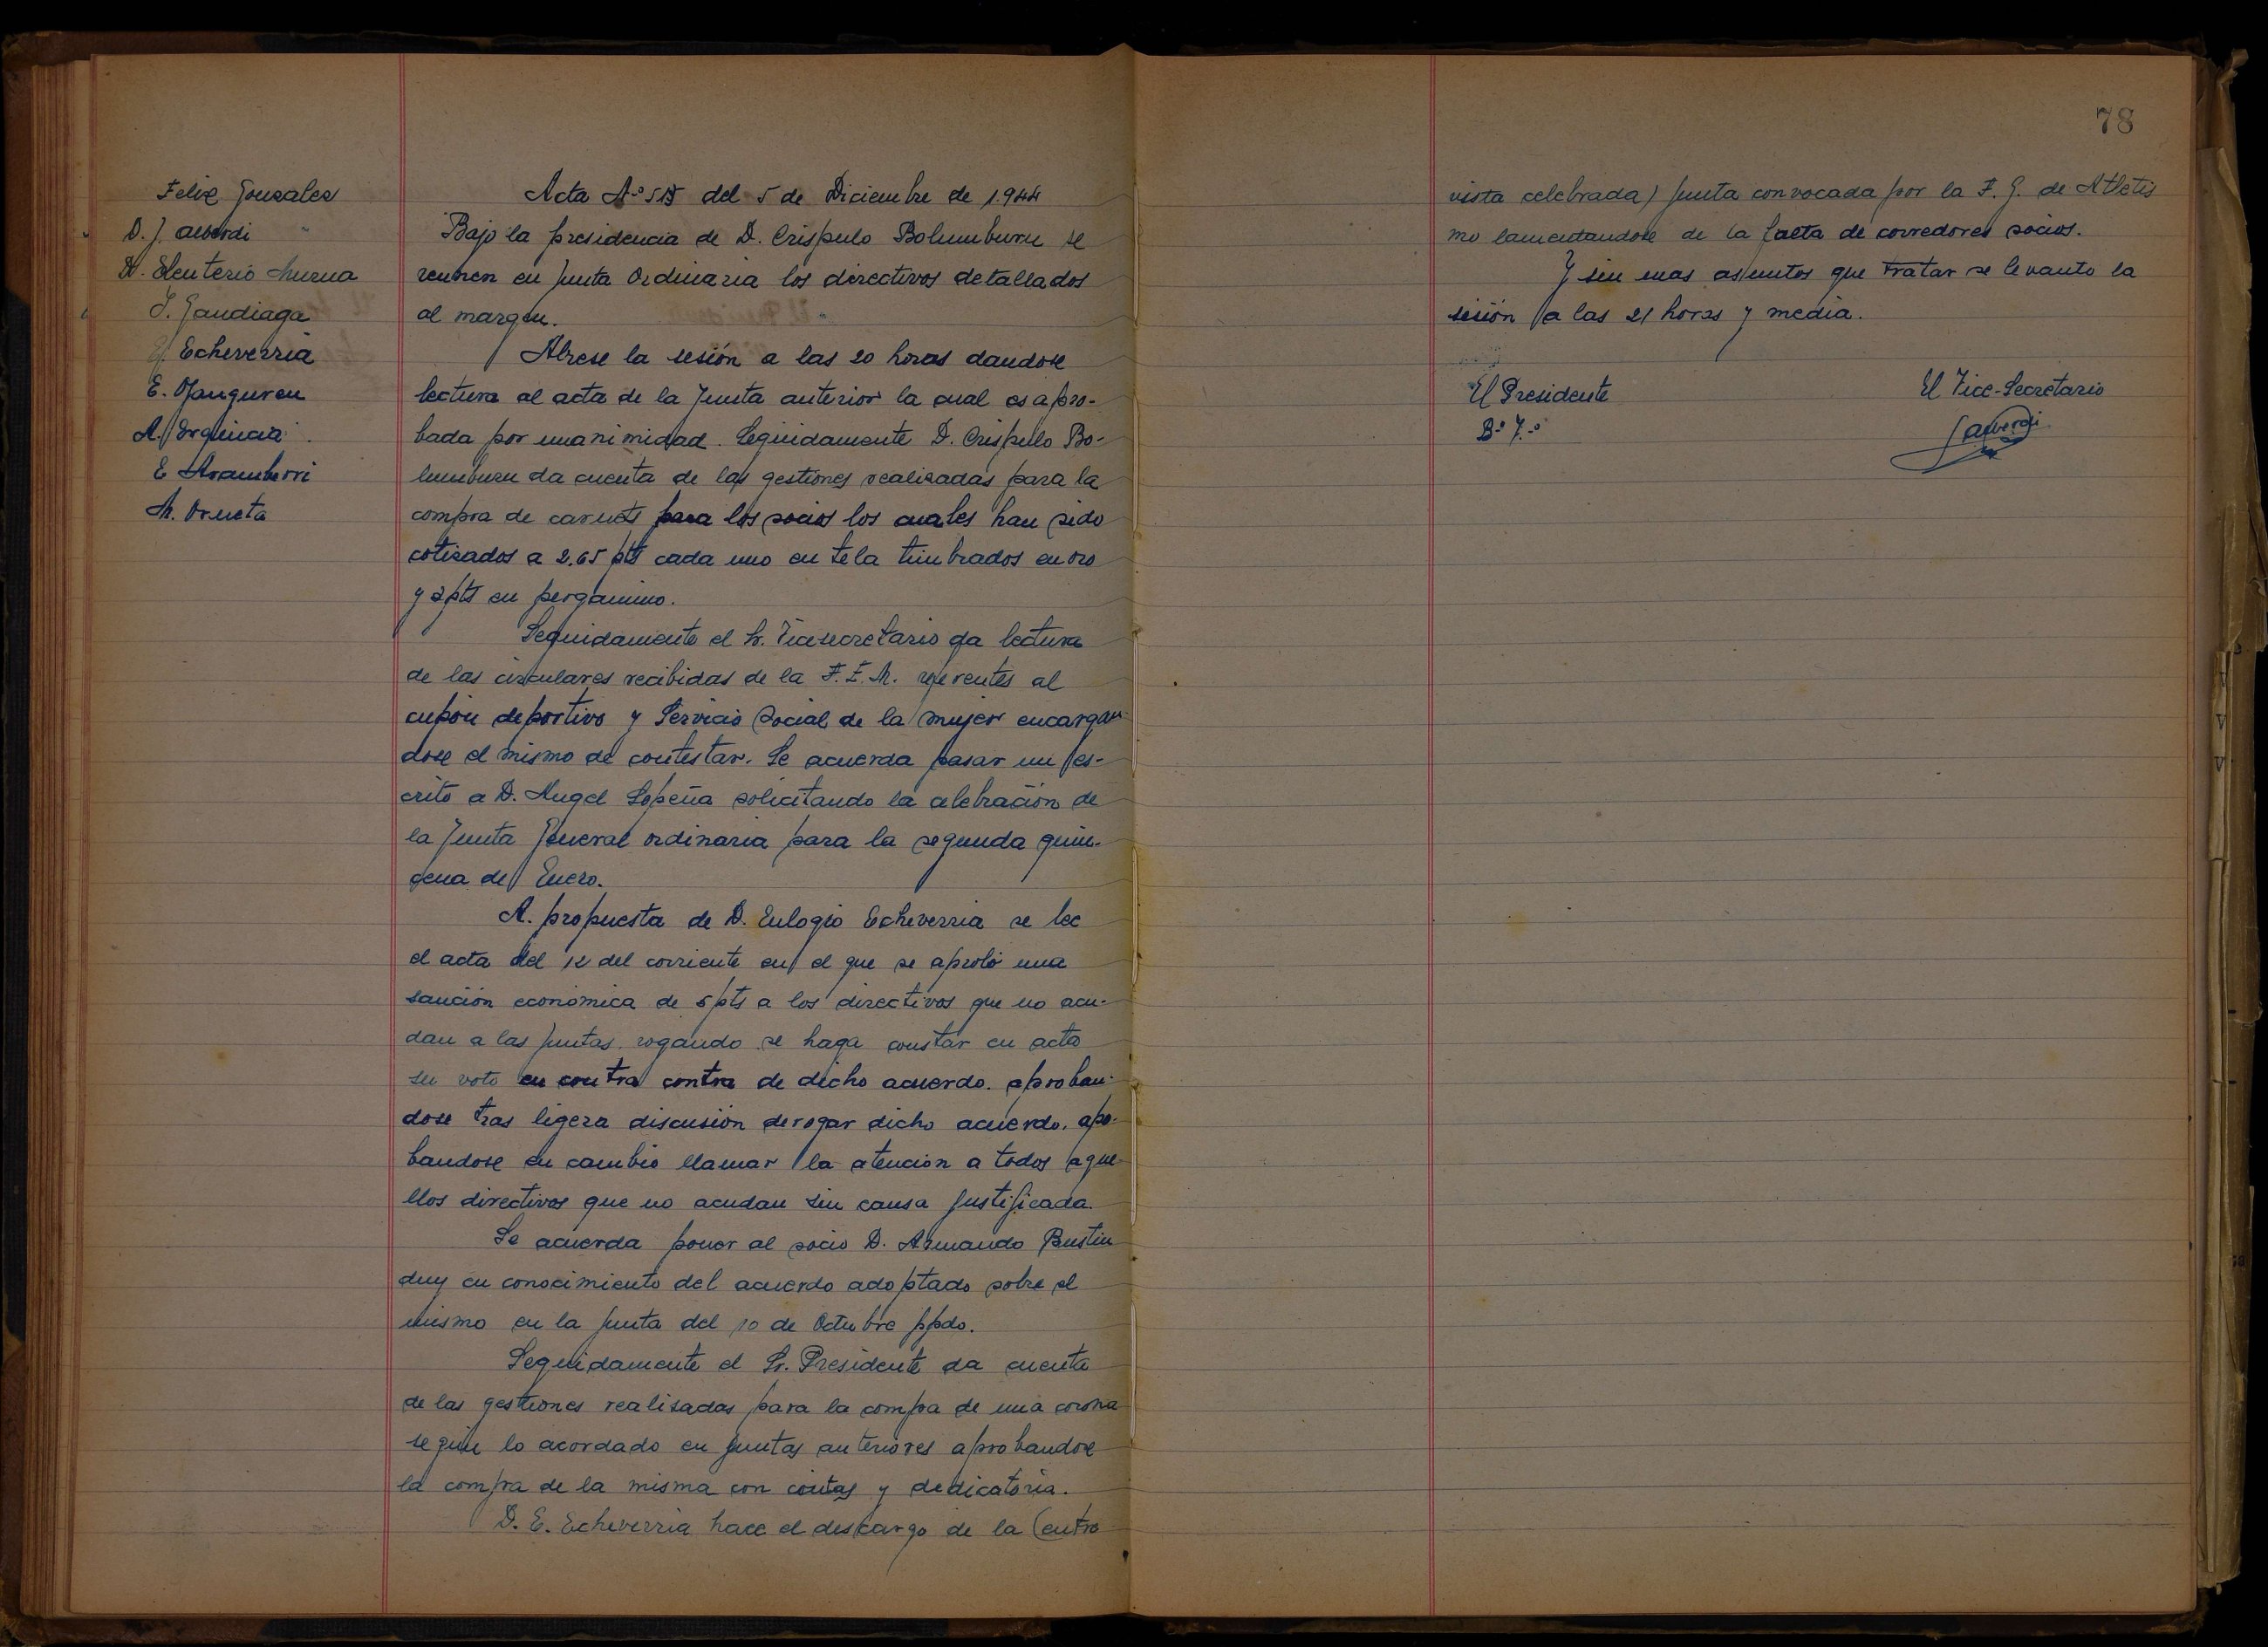 78
Felix Gonzalez
D. J. alberdi "
D. Eleuterio Murua
J. Gandiaga
Echeverria
E. Ojanguren
A. Orguicia
E Aramberri
M. Orueta
Acta Nº 515 del 5 de Diciembre de 1.944
Bajo la presidencia de D. Crispulo Bolumburu se
reunen en Junta Ordinaria los directivos detallados
al margen.
Abrese la sesión a las 20 horas dandose
lectura al acta de la Junta anterior la cual es apro-
bada por unanimidad. Seguidamente D. Crispulo Bo-
lumburu da cuenta de las gestiones realizadas para la
compra de carnets para los socios los cuales han sido
cotizados a 2.65 pts cada uno en tela timbrados en oro
y 2 pts en pergamino.
Seguidamente el Sr. Vicesecretario da lectura
de las circulares recibidas de la F.E.M. referentes al
cupón deportivo y Servicio Social de la mujer encargan-
dose el mismo de contestar. Se acuerda pasar un es-
crito a D. Angel Sopeña solicitando la celebración de
la Junta General ordinaria para la segunda quin-
cena de Enero.
A. propuesta de D. Eulogio Echeverria se lee
el acta del 12 del corriente en el que se aprobó una
sanción económica de 5 pts a los directivos que no acu-
dan a las Juntas. rogando se haga constar en acta
su voto en contra contra de dicho acuerdo. aproban-
dose tras ligera discusión derogar dicho acuerdo. apro-
bandose en cambio llamar la atención a todos aque-
llos directivos que no acudan sin causa Justificada.
Se acuerda poner al socio D. Armando Bustin
duy en conocimiento del acuerdo adoptado sobre el
mismo en la Junta del 10 de Octubre ppdo.
Seguidamente el Sr. Presidente da cuenta
de las gestiones realizadas para la compra de una corona
segun lo acordado en Juntas anteriores aprobandose
la compra de la misma con cintas y dedicatoria.
D. E. Echeverria hace el descargo de la (entre
vista celebrada) Junta convocada por la F. G. de Atletis
mo lamentandose de la falta de corredores socios.
Y sin mas asuntos que tratar se levanto la
sesión a las 21 horas y media.
El Presidente
Bº Vº
El Vice-Secretario
J alberdi